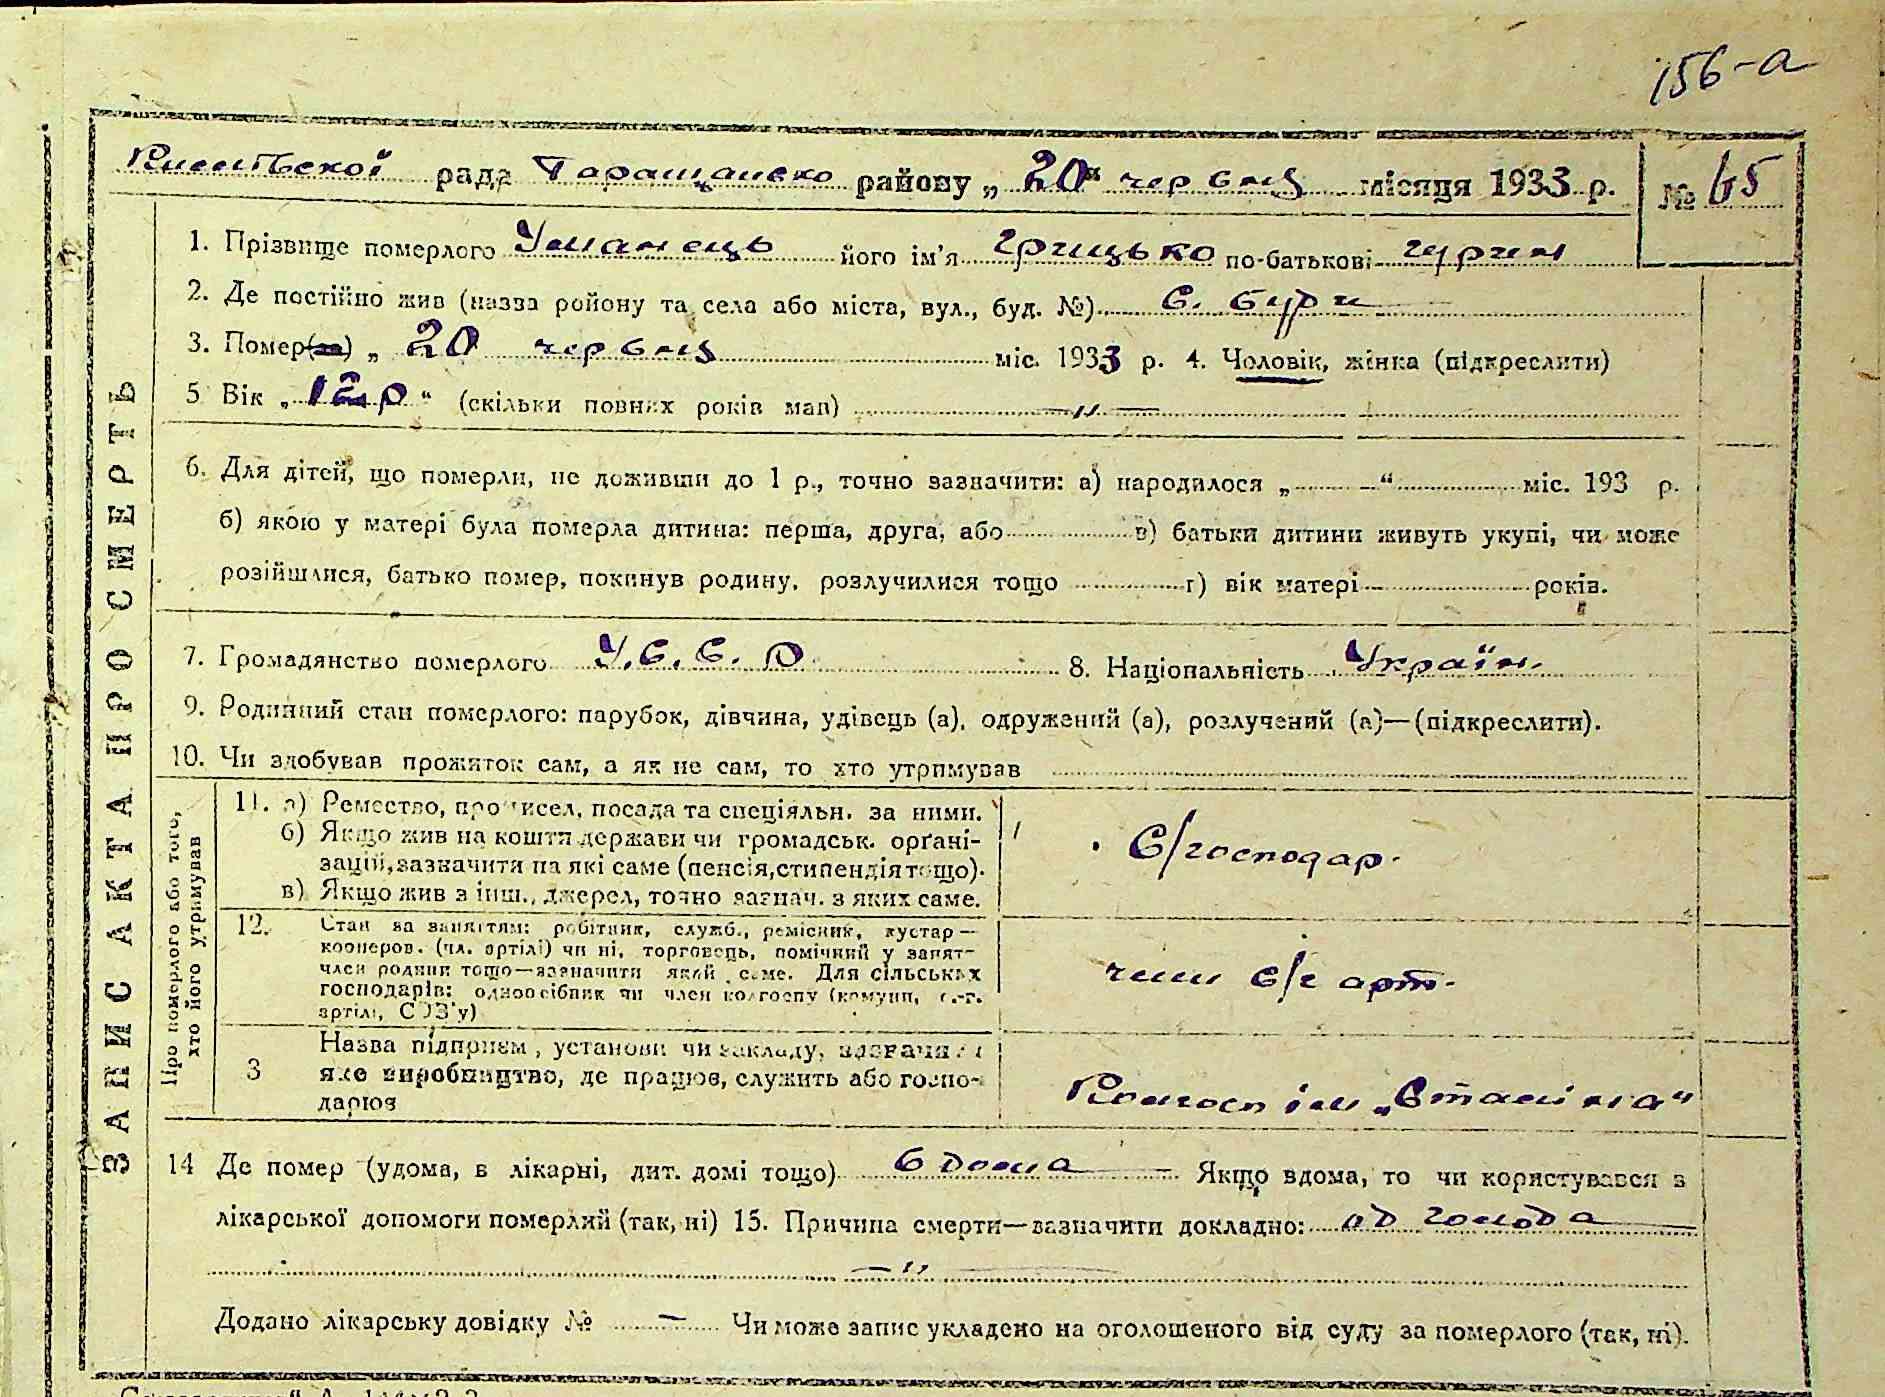 156-а
рада Таращанско району „ 20 “ червня місяця 1933 р. № 65
1. Прізвище померлого Уманець його ім'я Грицько по-батькові
2. Де постійно жив (назва району та села або міста, вул., буд. №) С. Бурти
3. Помер(ла) „ 20 червня міс. 1933 р. 4. Чоловік, жінка (підкреслити)
5 Вік „ 12 р “ (скільки повних років мав) —„—
6. Для дітей, що померли, не доживши до 1 р., точно зазначити: а) народилося „ “ міс. 193 р.
б) якою у матері була померла дитина: перша, друга, або в) батьки дитини живуть укупі, чи може
розійшлися, батько помер, покинув родину, розлучилися тощо г) вік матері років.
7. Громадянство померлого У.С.С.Р 8. Національність Україн.
9. Родинний стан померлого: парубок, дівчина, удівець (а), одружений (а), розлучений (а)—(підкреслити).
10. Чи здобував прожиток сам, а як не сам, то хто утримував
ЗАПИС АКТА ПРО СМЕРТЬ
Про померлого або того, хто його утримував
11. а) Ремество, промисел, посада та спеціяльн. за ними.
б) Якщо жив на кошти держави чи громадськ. орґані-
зацій, зазначити на які саме (пенсія, стипендія тощо).
в) Якщо жив з інш., джерел, точно зазнач. з яких саме.
С/господар.
12. Стан за заняттям: робітник, служб., ремісник, кустар—
кооперов. (чл. артілі) чи ні, торговець, помічний у занят-
член родини тощо—зазначити який саме. Для сільських
господарів: одноосібник чи член колгоспу (комуни, с.-г.
артілі, СОЗ'у)
член с/г арт.
3 Назва підприєм., установи чи закладу,
яке виробництво, де працює, служить або госпо-
дарює
Колгосп ім „Сталіна"
14 Де помер (удома, в лікарні, дит. домі тощо) вдома — Якщо вдома, то чи користувався з
лікарської допомоги померлий (так, ні) 15. Причина смерти—зазначити докладно: од голода
—„—
Додано лікарську довідку № — Чи може запис укладено на оголошеного від суду за померлого (так, ні).